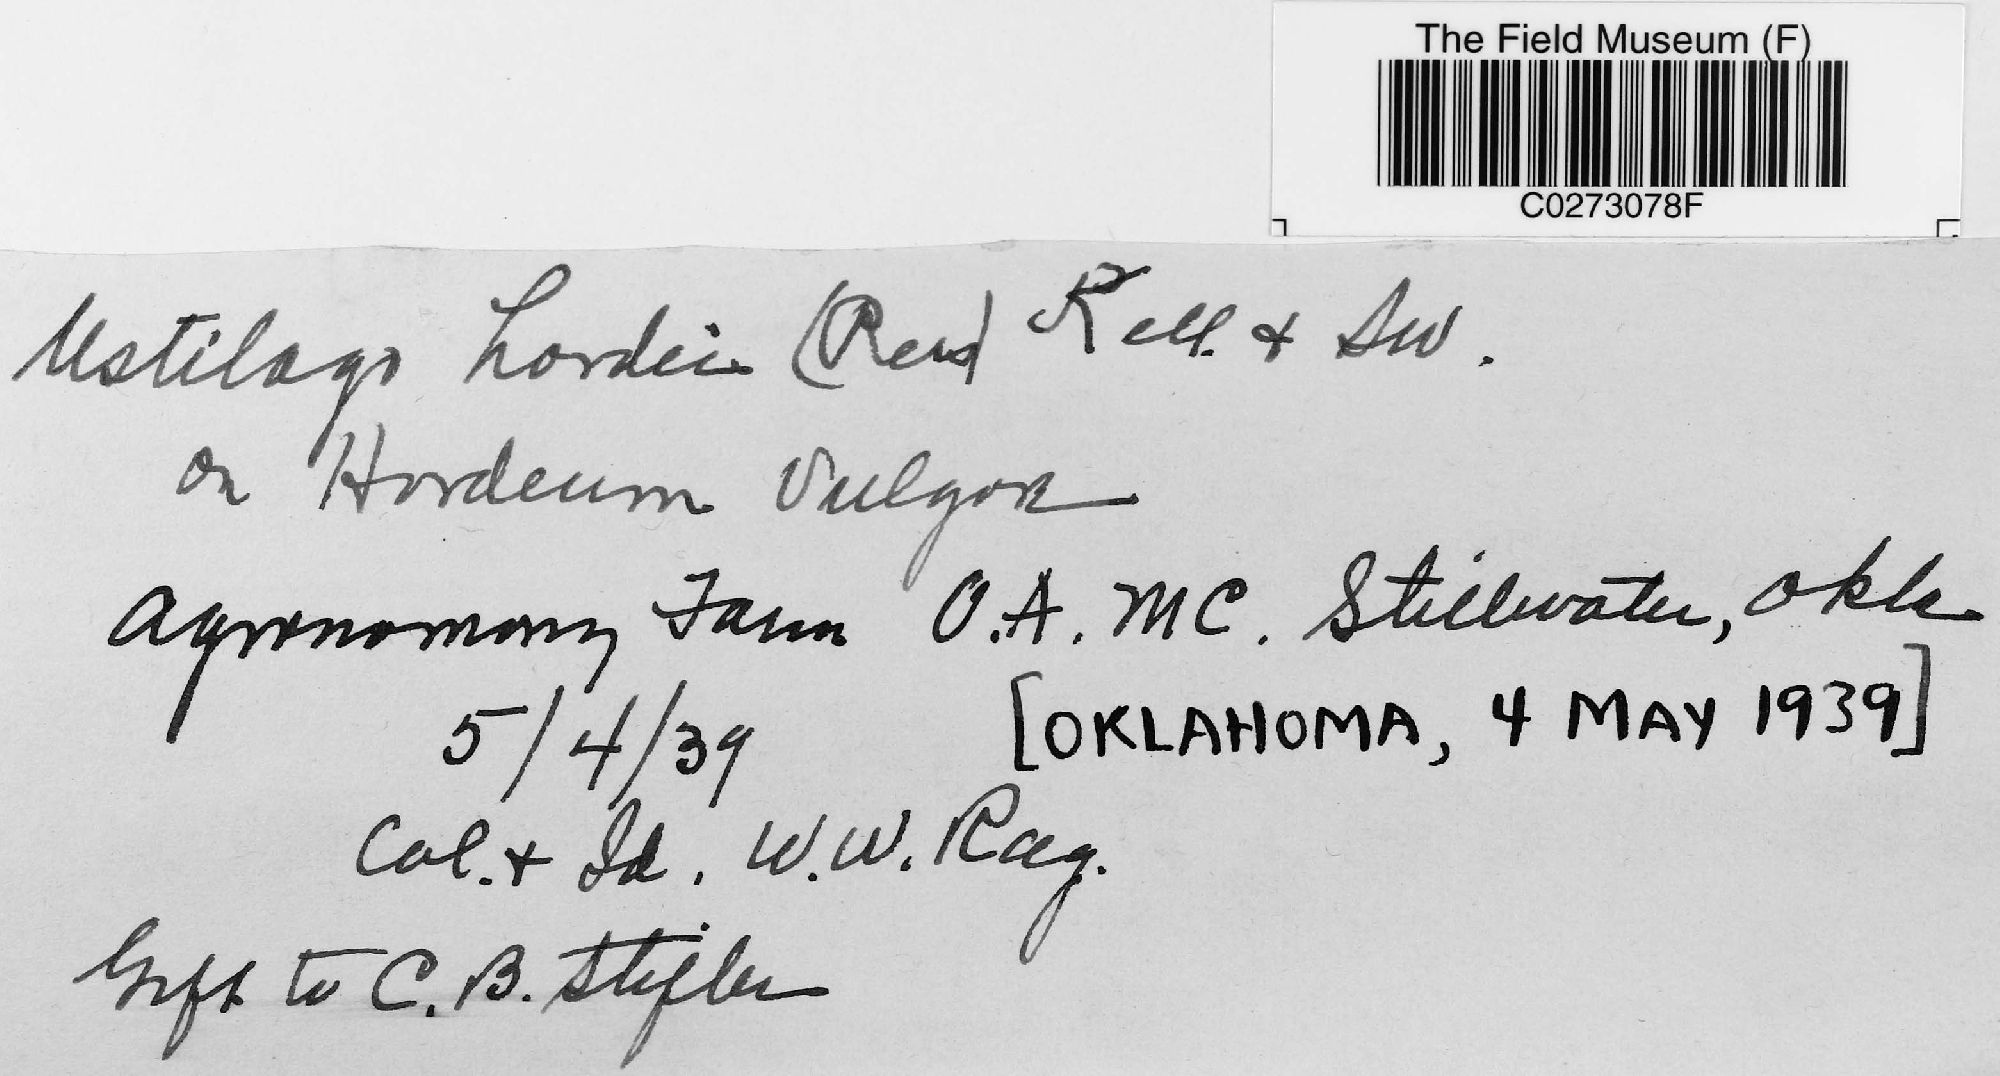 The Field Museum (F)
C0273078F
Ustilago hordei (Pers) Kell. & Sw.
on Hordeum Vulgare
Agronomony Farm O.A.MC. Stillwater, Okla
5/4/39 [OKLAHOMA, 4 MAY 1939]
Col. + Id. W.W. Ray.
Gift to C.B. Stifler